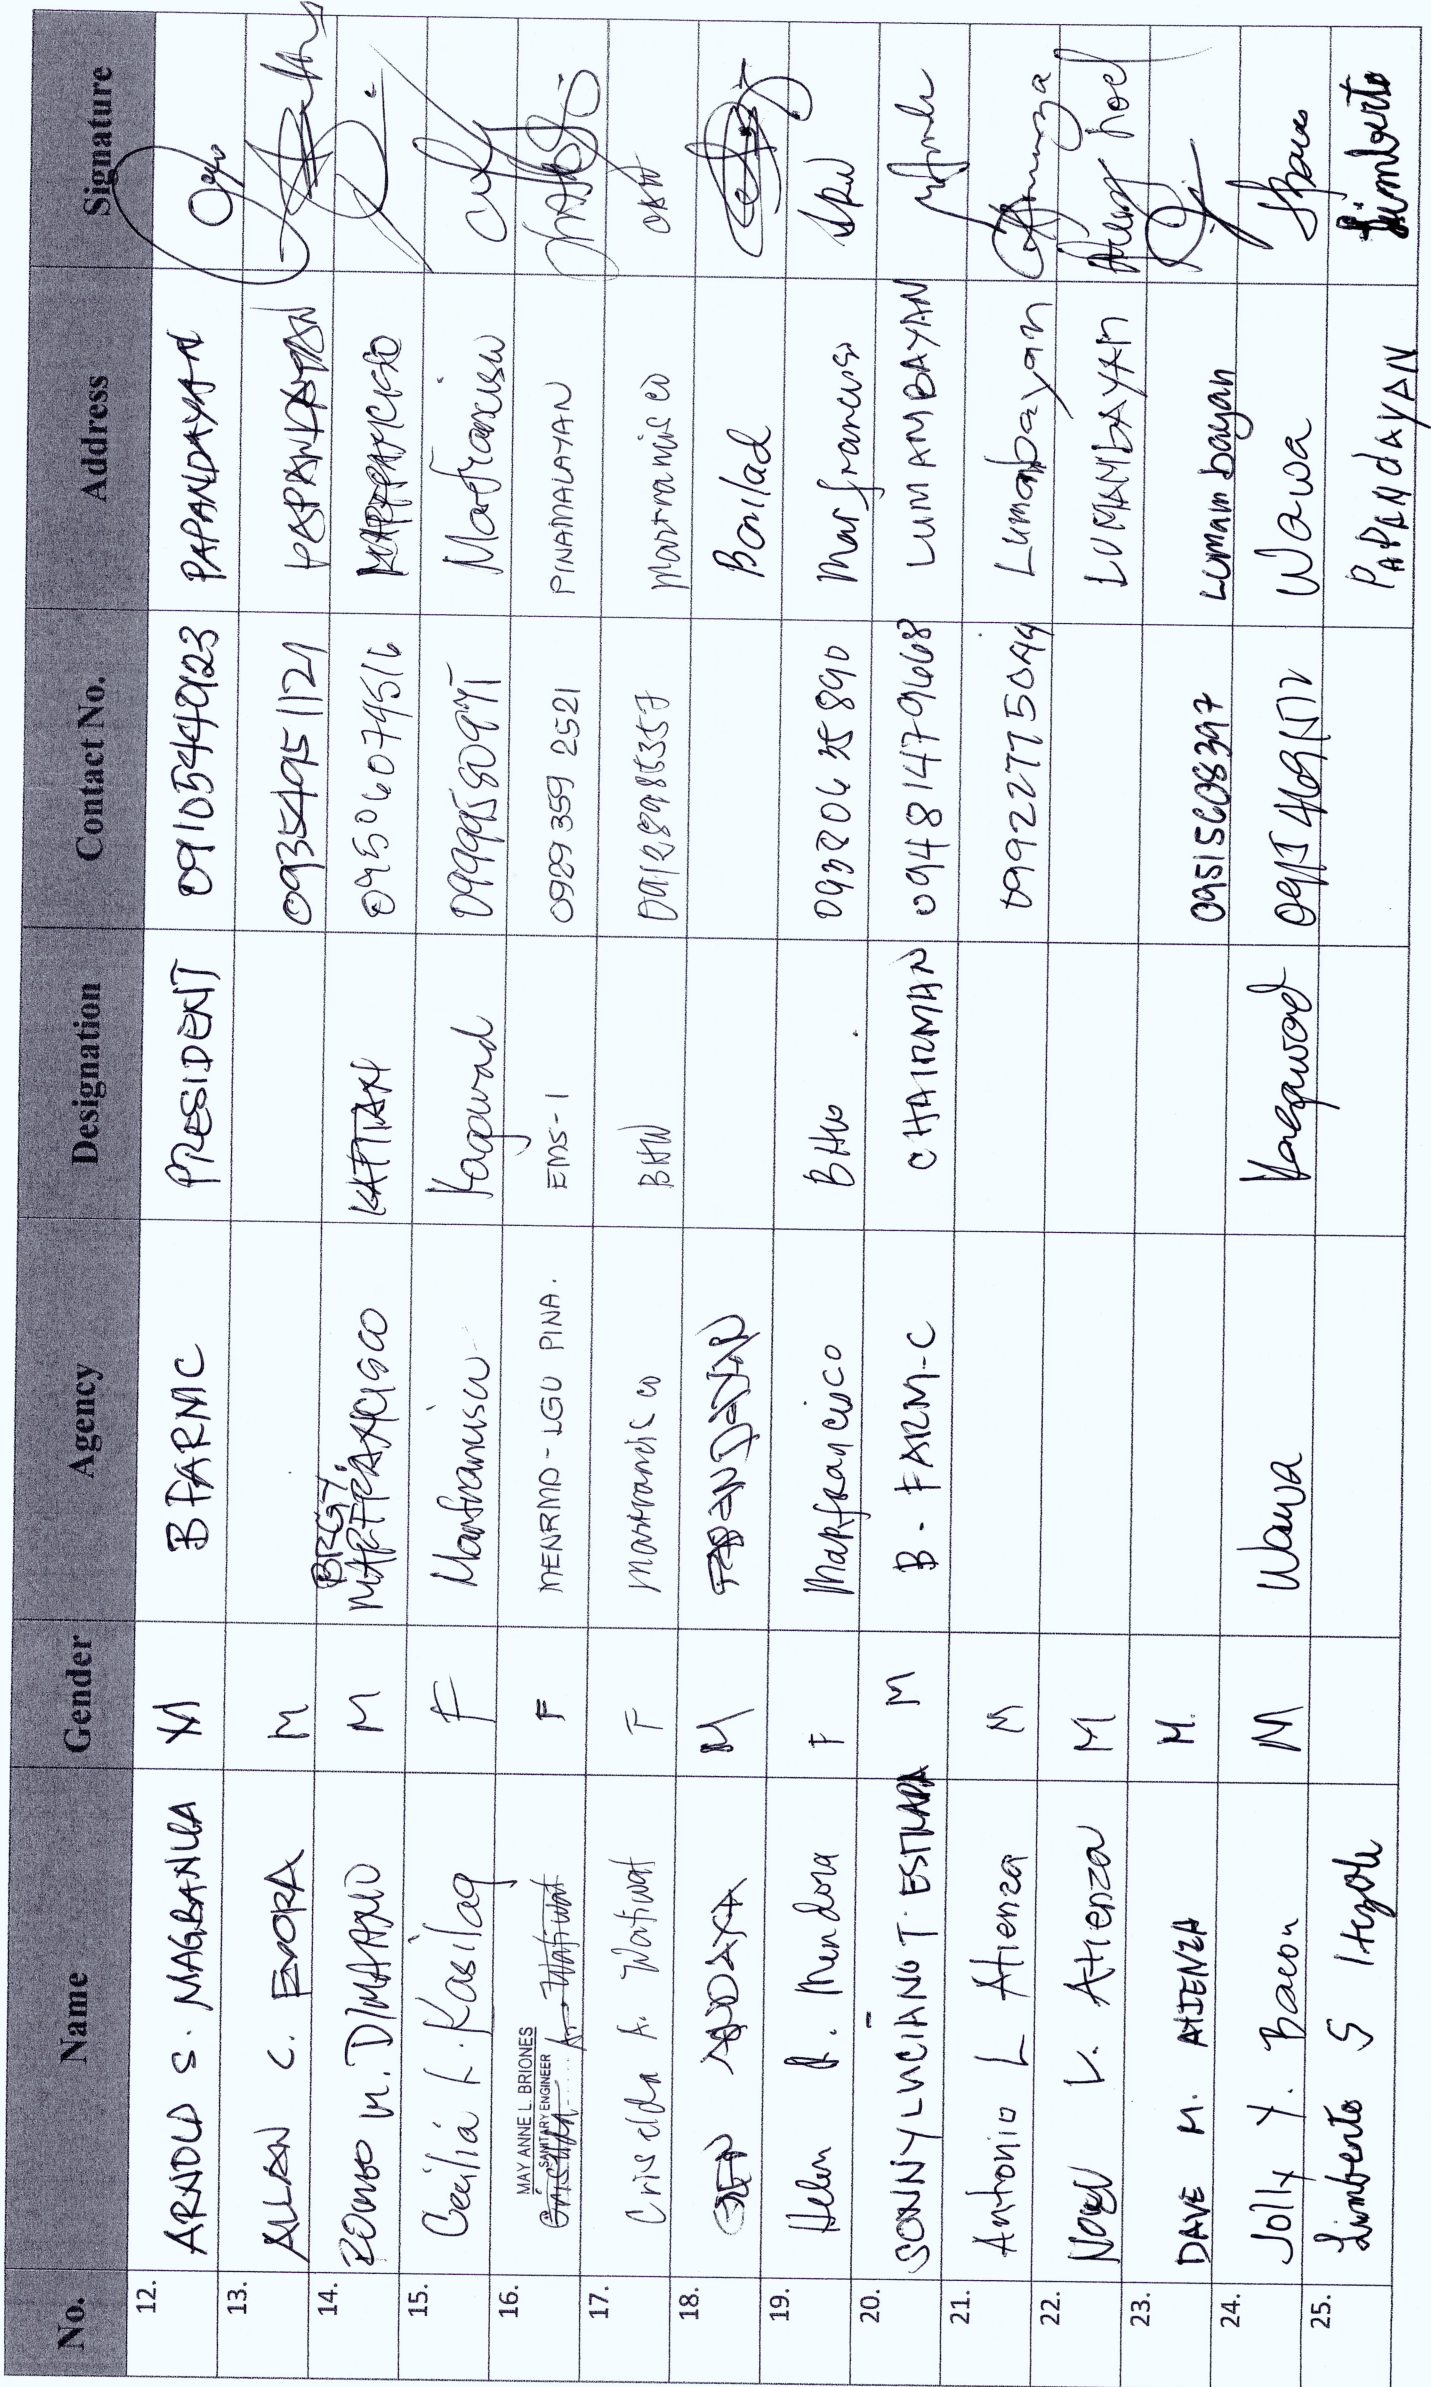 No. Name Gender Agency Designation Contact No. Address Signature
12. ARNOLD S. MAGBANUA M BFARMC PRESIDENT 09105449123 PAPANDAYAN
13. ALLAN C. EMORA M 09354951121 PAPANDAYAN
14. M. DIMAANO M BRGY. MARFRANCISCO KAPITAN 09506074516 MARFRANCISCO
15. Cecilia L. Kasilag F Marfrancisco Kagawad Marfrancisco
16. MAY ANNE L. BRIONES F MENRMD-LGU PINA. EMS-1 0929 359 2521 PINAMALAYAN
SANITARY ENGINEER
17. Criselda A. Watiwat F Marfrancisco BHW 09128985357 Marfrancisco
18. ANDAYA M PAPANDAYAN Banilad
19. Helen R. Mendora F Marfrancisco BHW Marfrancisco
20. SONNY LUCIANO T. ESTRADA M B-FARM-C CHAIRMAN 09481479668 LUMAMBAYAN
21. Antonio L Atienza M 09922775044 Lumambayan
22. Noel V. Atienza M LUMAMBAYAN
23. DAVE M. ATIENZA M. 09515608397 Lumambayan
24. Jolly Y. Bacon M Wawa Kagawad Wawa
25. Limberto S PAPANdAYAN Limberto